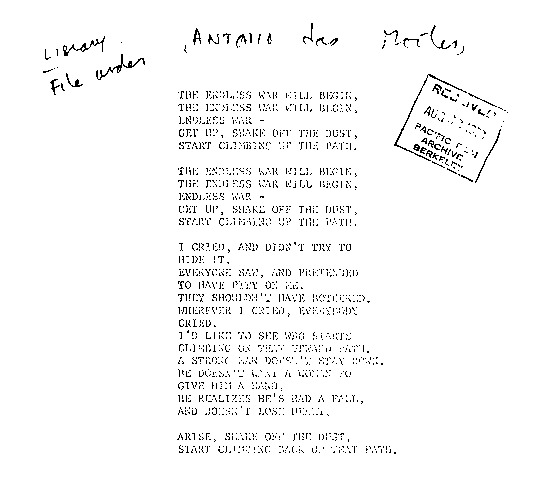 Library
File under
Antonio das Mortes
RECEIVED
AUG
PACIFIC FILM
ARCHIVE
BERKELEY
THE ENDLESS WAR WILL BEGIN,
THE ENDLESS WAR WILL BEGIN,
ENDLESS WAR -
GET UP, SHAKE OFF THE DUST,
START CLIMBING UP THE PATH.
THE ENDLESS WAR WILL BEGIN,
THE ENDLESS WAR WILL BEGIN,
ENDLESS WAR -
GET UP, SHAKE OFF THE DUST,
START CLIMBING UP THE PATH.
I CRIED, AND DIDN'T TRY TO
HIDE IT.
EVERYONE SAW, AND PRETENDED
TO HAVE PITY ON ME.
THEY SHOULDN'T HAVE BOTHERED.
WHEREVER I CRIED, EVERYBODY
CRIED.
I'D LIKE TO SEE WHO STARTS
CLIMBING ON THAT PATH.
A STRONG MAN DOESN'T STAY DOWN.
HE DOESN'T WANT A TO
GIVE HIM A HAND,
HE REALIZES HE'S HAD A FALL,
AND DOESN'T LOSE
ARISE, SHAKE OFF THE DUST,
START CLIMBING BACK UP THAT PATH.